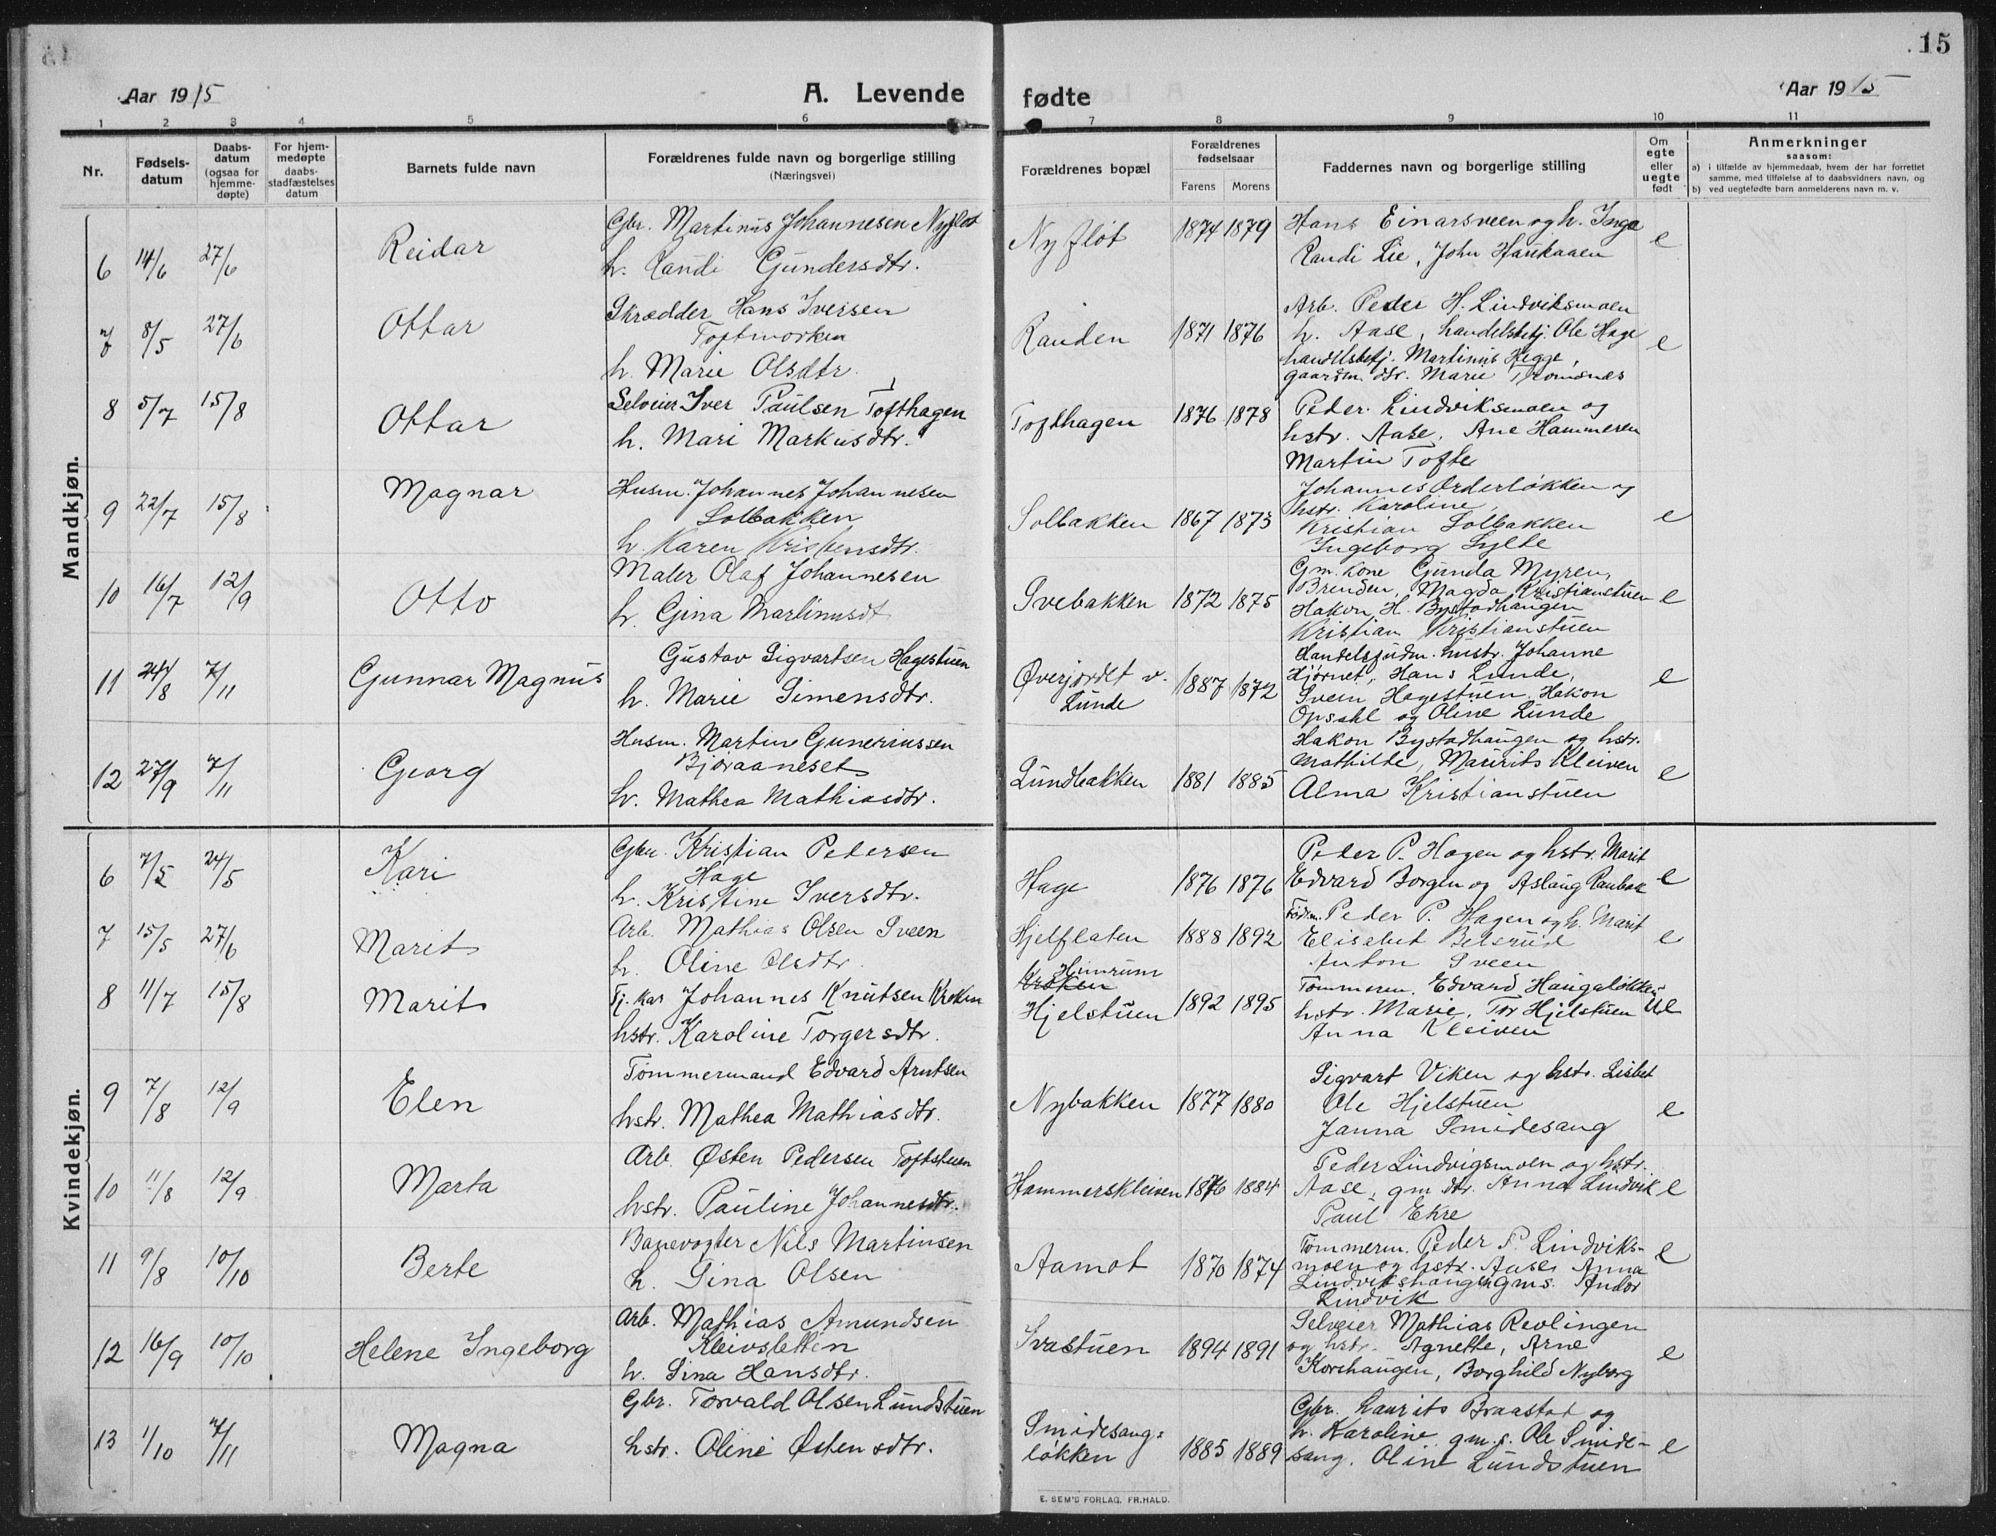 15
Aar 1915
A. Levende
fødte
Aar 1915
1 2 3 4 5 6 7 8 9 10 11
Nr.
Fødsels-
datum
Daabs-
datum
(ogsaa for
hjemme-
døpte)
For hjem-
medøpte
daabs-
stadfæstelses
datum
Barnets fulde navn
Forældrenes fulde navn og borgerlige stilling
(Næringsvei)
Forældrenes bopæl
Forældrenes
fødselsaar
Farens Morens
Faddernes navn og borgerlige stilling
Om
egte
eller
uegte
født
Anmerkninger
saasom:
a) i tilfælde av hjemmedaab, hvem der har forrettet
samme, med tilføielse af to daabsvidners navn, og
b) ved uegtefødte barn anmelderens navn m. v.
Mandkjøn.
6 14/6 27/6 Reidar
Gbr. Martinus Johannesen Nyfløt
h. Randi Gundersdtr.
Nyfløt 1874 1879
Hans Einarsveen og h. Inga
Randi Lie, John Harekaaen
e
7 8/5 27/6 Ottar
Skrædder Hans Iversen
Toftmorken
h. Marie Olsdtr.
Randen 1871 1876
Arb. Peder H. Lindviksmoen
h. Aase, handelsbetj. Ole Hage
handelsbetj. Martinus Hegge,
gaardm. dtr. Marie Tromsnes
e
8 5/7 15/8 Ottar
Selveier Iver Paulsen Tofthagen
h. Mari Markusdtr.
Tofthagen 1876 1878
Peder Lindviksmoen og
hstr. Aase, Ane Hammeren
Martin Tofte
9 22/7 15/8 Magnar
Husm. Johannes Johannesen
Solbakken
h. Karen Kristensdtr.
Solbakken 1867 1873
Johannes Orderløkken og
hstr. Karoline,
Kristian Solbakken
Ingeborg Sylte
e
10 16/7 12/9 Otto
Maler Olaf Johannesen
h. Gina Martinusdt
Svebakken 1872 1875
Gm. kone Gunda Myren,
Brenden, Magda Kristianstuen
Hakon H. Bystadhaugen
Kristian Kristianstuen
e
11 24/8 7/11 Gunnar Magnus
Gustav Sigvartsen Hagestuen
h. Marie Simensdtr.
Øverjordet v.
Lunde
1887 1872
Handelsfuldm. hustr. Johanne
Hjørnet, Hans Lunde,
Sveen Hagestuen, Hakon
Opsahl og Oline Lunde
e
12 27/9 7/11 Georg
Husm. Martin Guneriussen
Bjøraaneset
h. Mathea Mathiasdtr.
Lundbakken 1881 1885
Hakon Bystadhaugen og hstr.
Mathilde, Maurits Kleiven
Alma Kristianstuen
e
Kvindekjøn.
6 7/5 24/5 Kari
Gbr. Kristian Pedersen
Hage
h. Kristine Iversdtr.
Hage 1876 1876
Peder P. Hagen og hstr. Marit
Edvard Borgen og Aslaug Raubak
e
7 15/5 27/6 Marit
Arb. Mathias Olsen Sveen
h. Oline Olsdtr.
Hjelflaten 1888 1892
Peder P. Hagen og h. Marit
Elisabet Belsrud
Anton Sveen
e
8 11/7 15/8 Marit
Tj. kar Johannes Knutsen Kroken
hstr. Karoline Torgersdtr.
Kroken
Hjelstuen 1892 1895
Tømmerm. Edvard Haugaløkken
hstr. Marie, Tor Hjelstuen
Anna Kleiven
ue
9 7/8 12/9 Elen
Tømmermand Edvard Arntsen
hstr. Mathea Mathiasdtr.
Nybakken 1877 1880
Sigvart Viken og hstr. Lisbet
Ole Hjelstuen
Janna Smidesang
e
10 11/8 12/9 Marta
Arb. Østen Pedersen Toftstuen
hstr. Pauline Johannesdtr.
Hammerskleiven 1876 1884
Peder Lindvigsmoen og hstr.
Aase, gm. dtr. Anna Lindvik
Paul Ekre
e
11 9/8 10/10 Berte
Banevogter Nils Martinsen
h. Sina Olsen
Aamot 1870 1874
Tømmerm. Peder P. Lindviks-
moen og hstr. Aase, Anna
Lindvikshaugen gms. Andor
Lindvik
e
12 16/9 10/10 Helene Ingeborg
Arb. Mathias Amundsen
Kleivsletten
h. Sina Hansdtr.
Svastuen 1894 1891
Selveier Mathias Revlingen
og hstr. Agnette, Arne
Korshaugen, Borghild Nyborg
e
13 1/10 7/11 Magna
Gbr. Torvald Olsen Lundstuen
hstr. Oline Østensdtr.
Smidesang-
løkken
1885 1889
Gbr. Laurits Braastad og
h. Karoline, gm. s. Ole Smide-
sang, Oline Lundstuen
e
E. SEM'S FORLAG, FR.HALD.